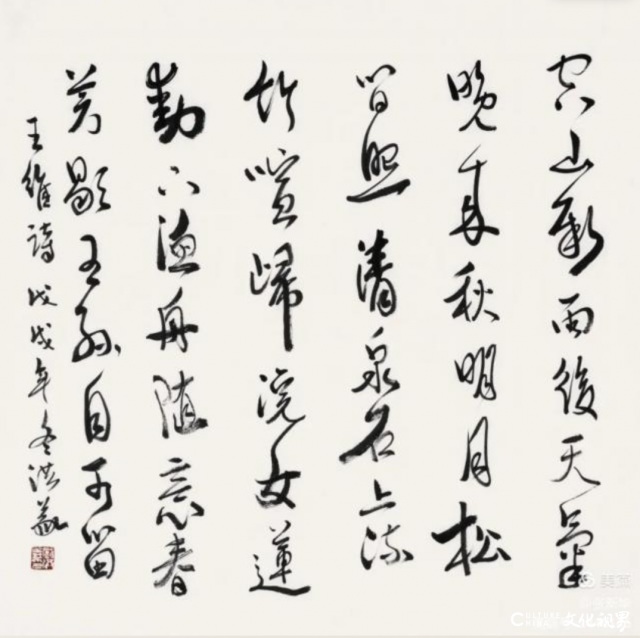 空山新雨後天氣
晚来秋明月松
間照清泉石上流
竹喧歸浣女蓮
動下漁舟随意春
芳歇王孫自可留
王維詩 戊戌年冬洪
美篇
文化视界